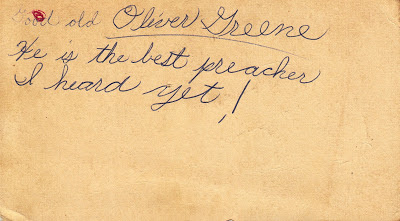 Good old Oliver Greene
He is the best preacher
I heard yet!